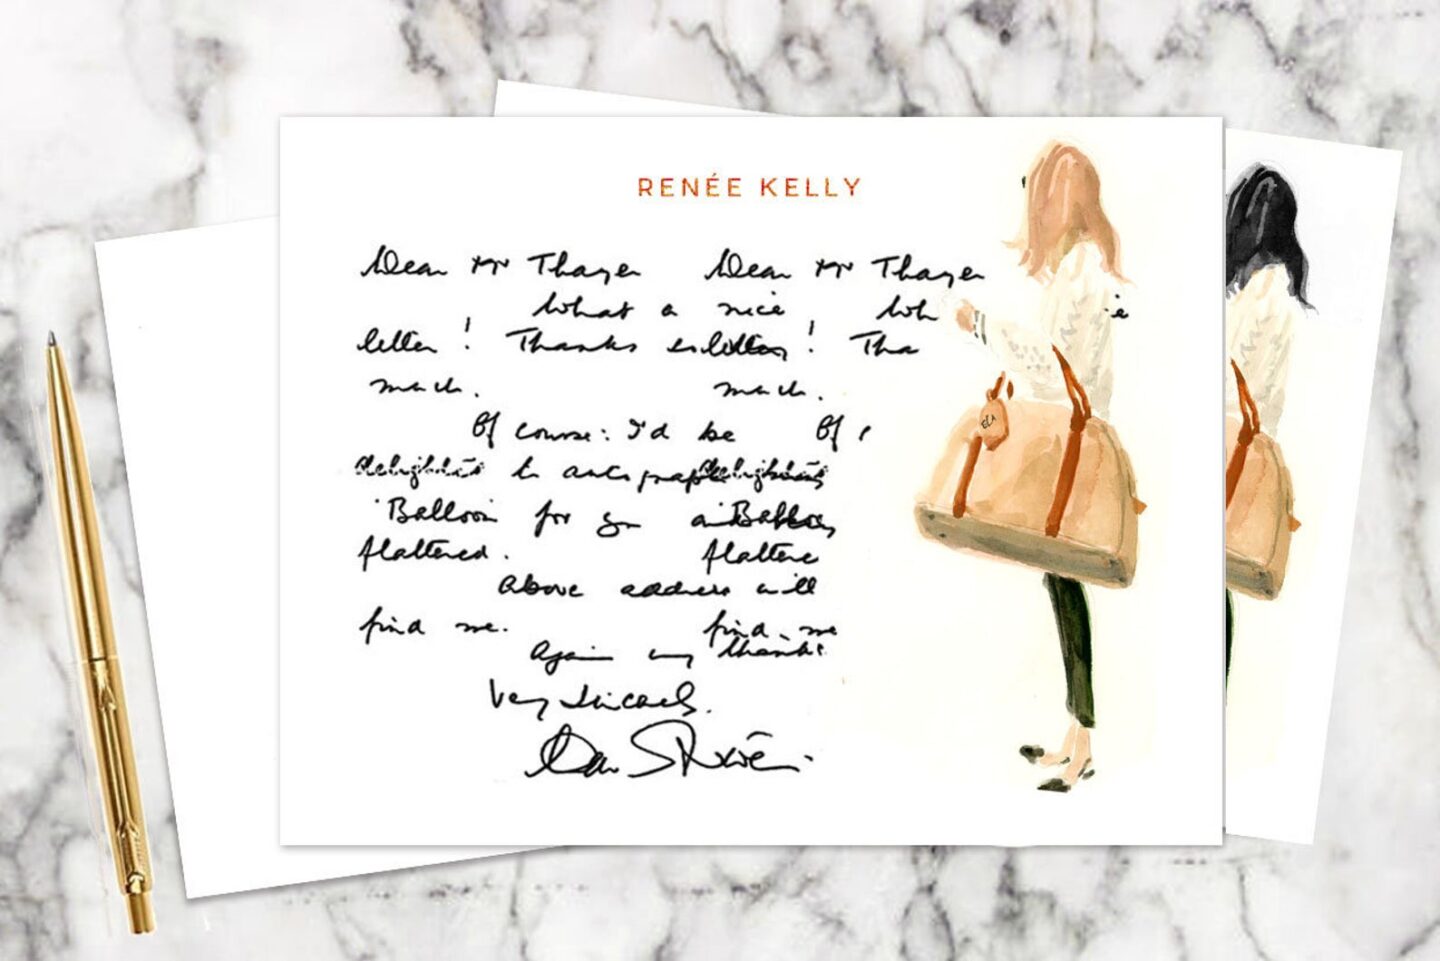 RENÉE KELLY
Dear Mr Thayer Dear Mr Thayer
What a nice Wh
letter! Thanks so letter! Tha
much. much.
Of course: I'd be Of
delighted to autograph delighted
Balloon for you Balloon
flattered. flattere
Above address will
find me. find me
Again my thanks
Very sincerely.
ELA